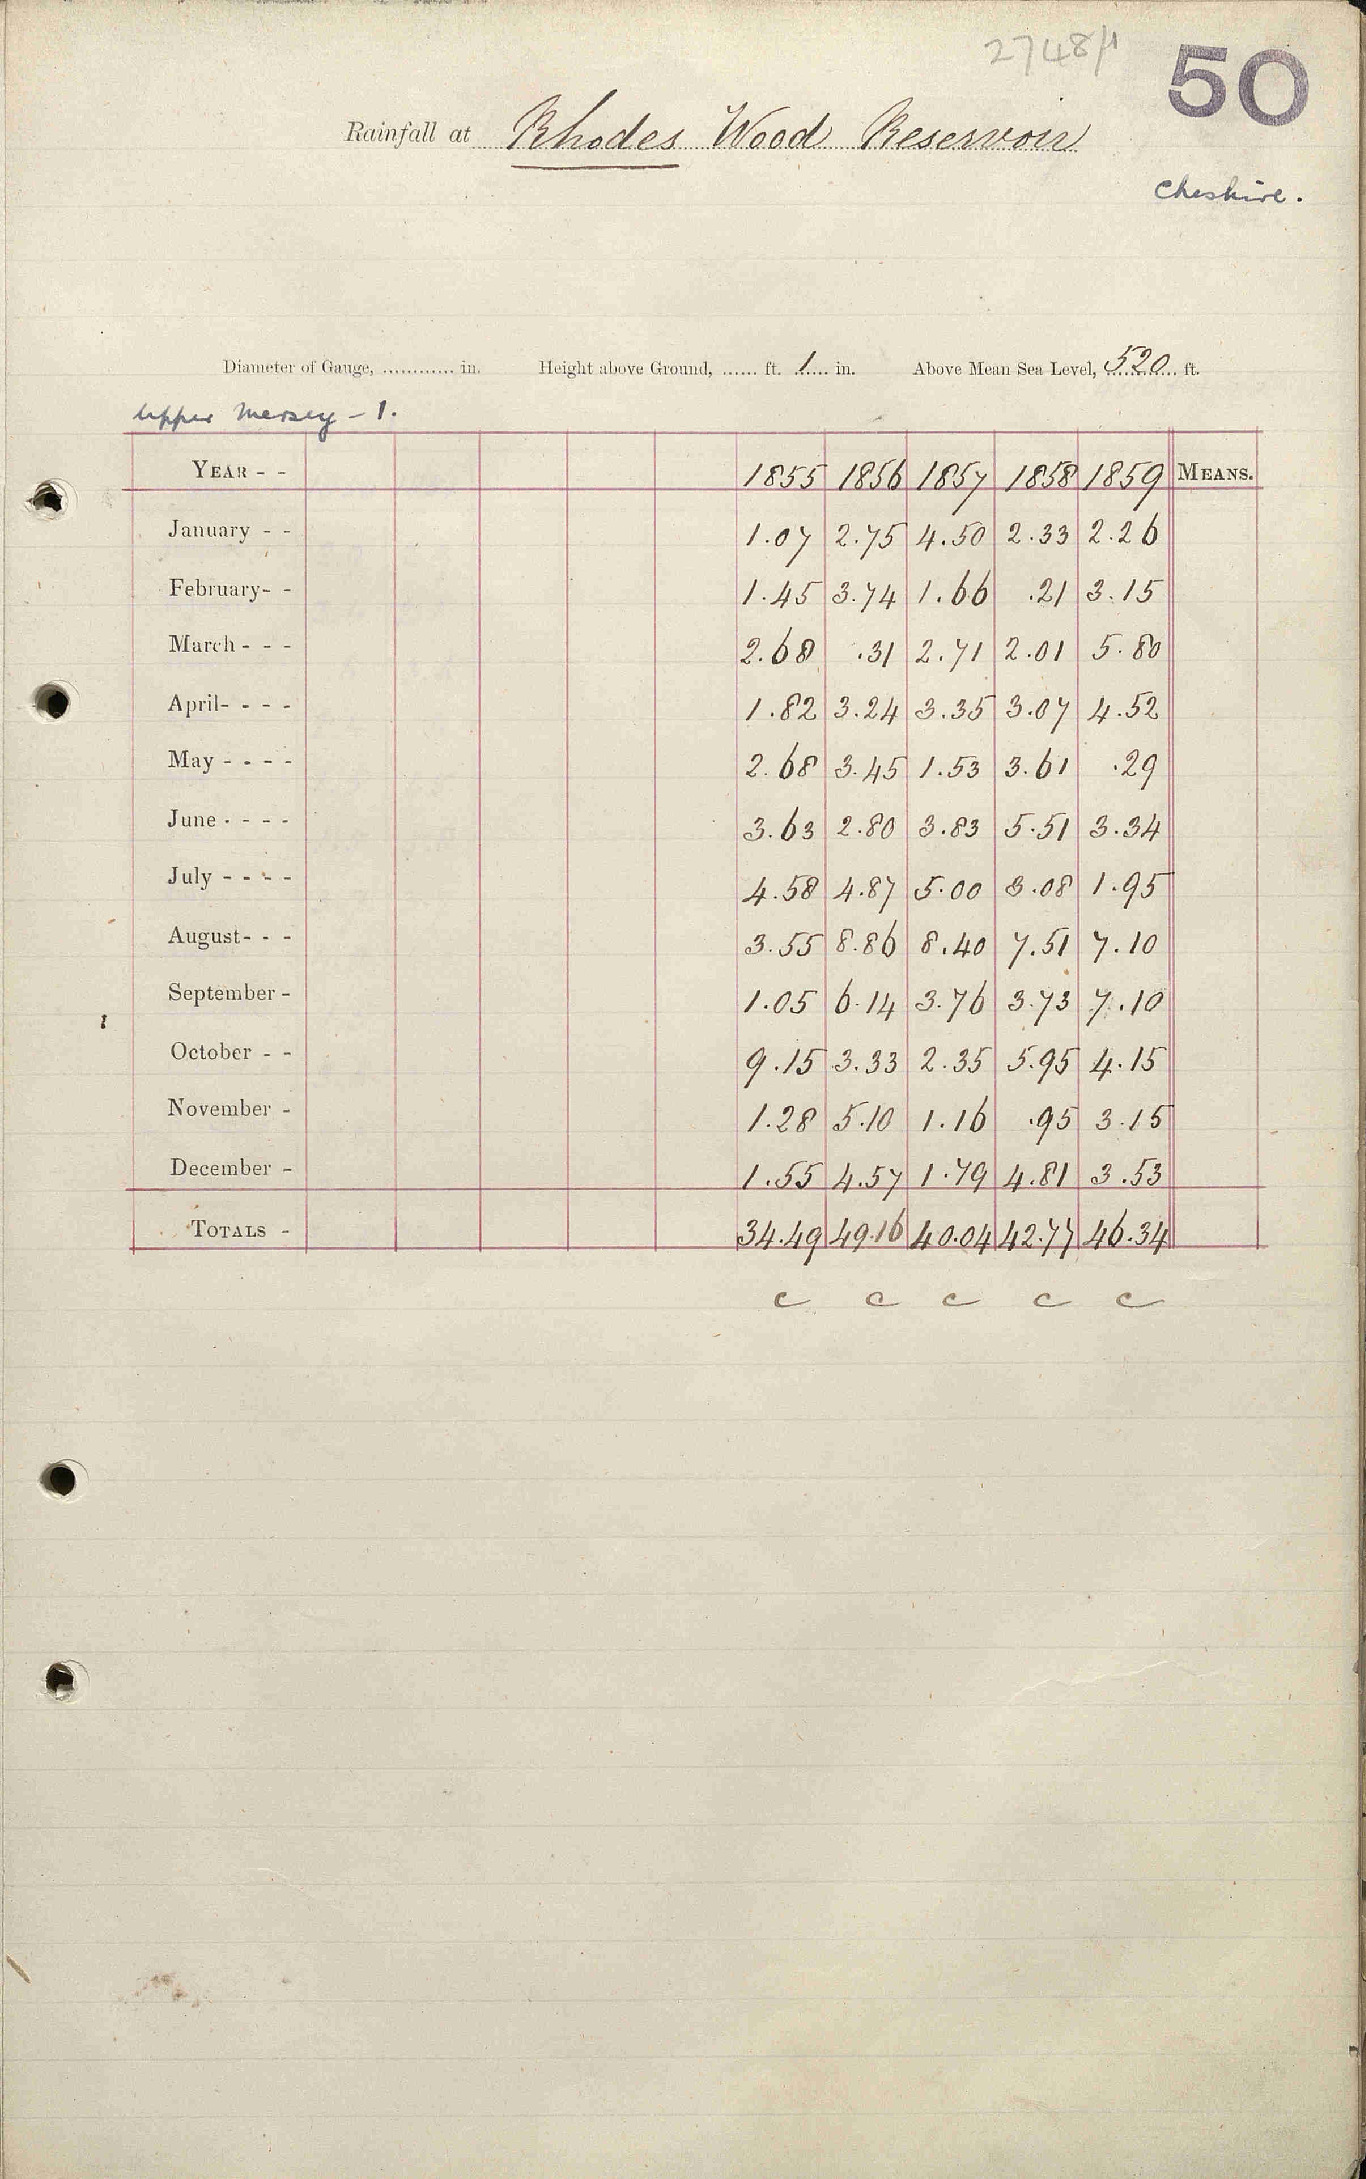 2748/1
50
Rainfall at Rhodes Wood Reservoir
Cheshire.
Diameter of Gauge, ............ in. Height above Ground, ...... ft. 1 in. Above Mean Sea Level, 520 ft.
Upper Mersey - 1.
YEAR - - 1855 1856 1857 1858 1859 MEANS.
January - - 1.07 2.75 4.50 2.33 2.26
February - - 1.45 3.74 1.66 .21 3.15
March - - - 2.68 .31 2.71 2.01 5.80
April - - - - 1.82 3.24 3.35 3.07 4.52
May - - - - 2.68 3.45 1.53 3.61 .29
June - - - - 3.63 2.80 3.83 5.51 3.34
July - - - - 4.58 4.87 5.00 3.08 1.95
August - - - 3.55 8.86 8.40 7.51 7.10
September - 1.05 6.14 3.76 3.73 7.10
October - - 9.15 3.33 2.35 5.95 4.15
November - 1.28 5.10 1.16 .95 3.15
December - 1.55 4.57 1.79 4.81 3.53
TOTALS - 34.49 49.16 40.04 42.77 46.34
c c c c c